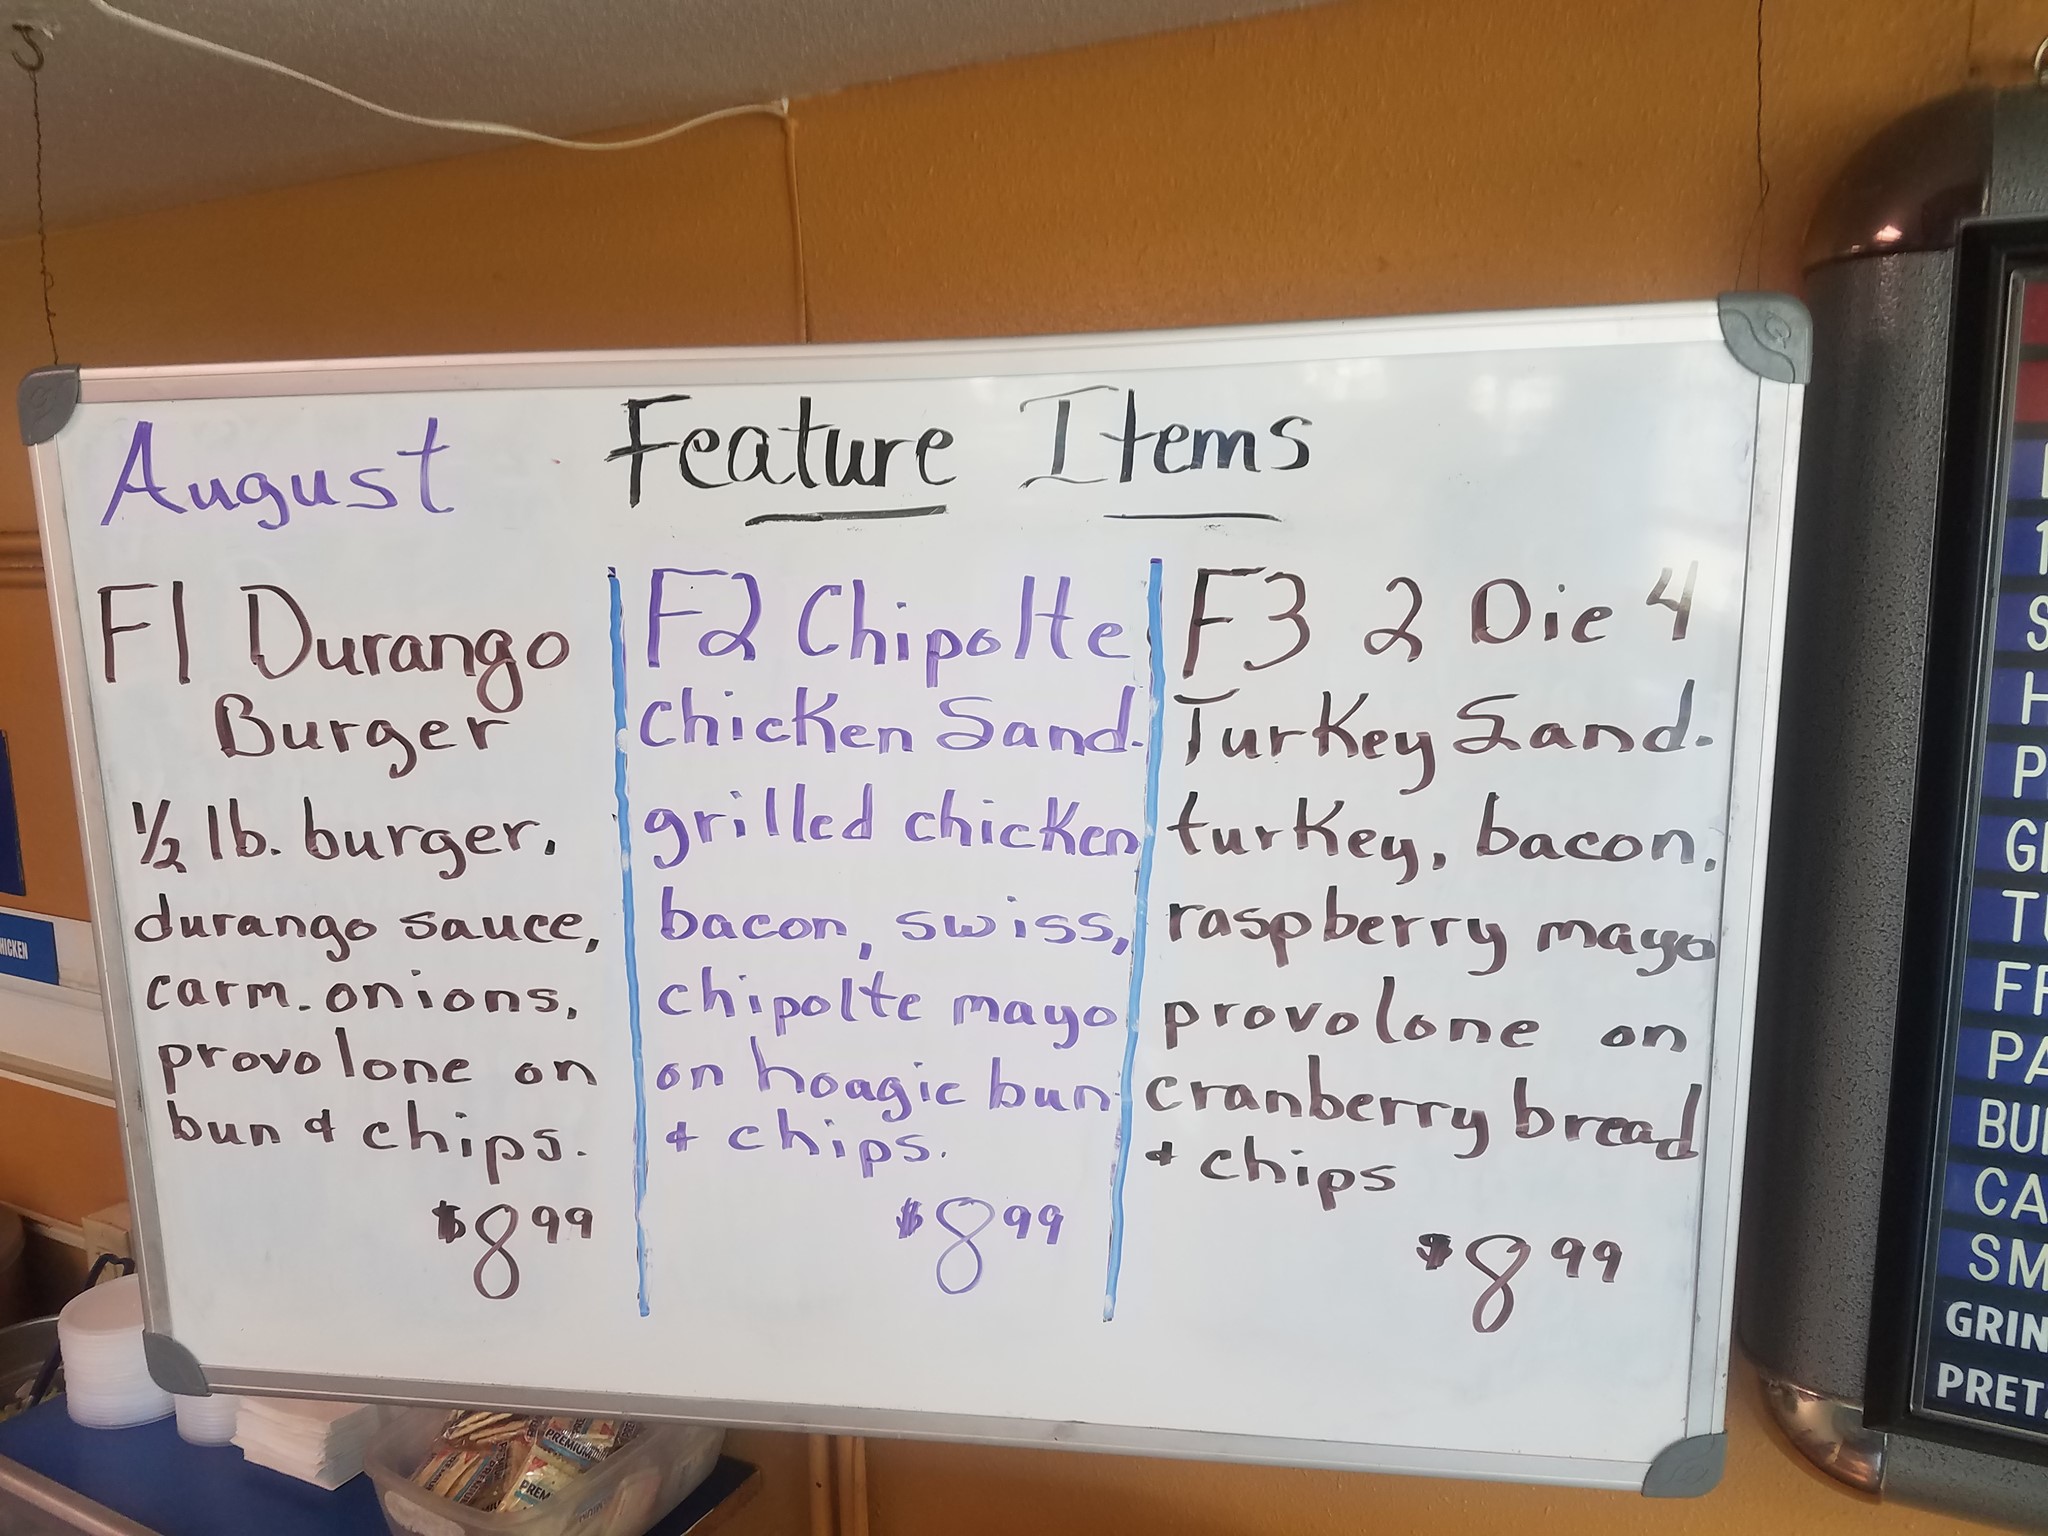 August Feature Items
F1 Durango
Burger
1/2 lb. burger,
durango sauce,
carm. onions,
provolone on
bun & chips.
$8.99
F2 Chipolte
Chicken Sand.
grilled chicken
bacon, swiss,
chipolte mayo
on hoagie bun
& chips.
$8.99
F3 2 Die 4
Turkey Sand.
turkey, bacon,
raspberry mayo
provolone on
cranberry bread
& chips
$8.99
HICKEN
PREMIUM
PREM
GRIN
PRET